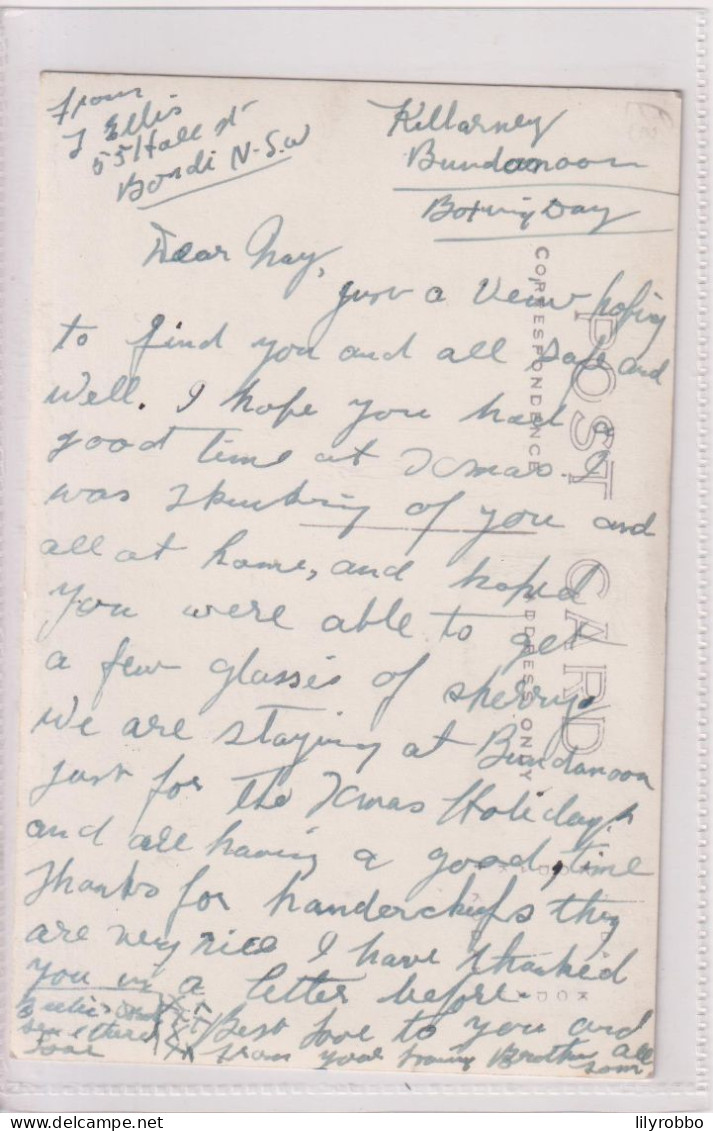 from
J Ellis
55 Hall st
Bondi N-S.W
Killarney
Bundanoon
Boxing Day
Dear May,
just a Veiw, hoping
to find you and all safe and
well. I hope you had a
good time at Xmas I
was thinking of you and
all at home, and hoped
you were able to get
a few glasses of sherry.
We are staying at Bundanoon
just for the Xmas Holidays
and are having a good, time
Thanks for handerchiefs they
are very nice I have thanked
you in a letter before.
Best love to you and
all
from your loving Brother
love
POST CARD
CORRESPONDENCE
ADDRESS ONLY
lilyrobbo